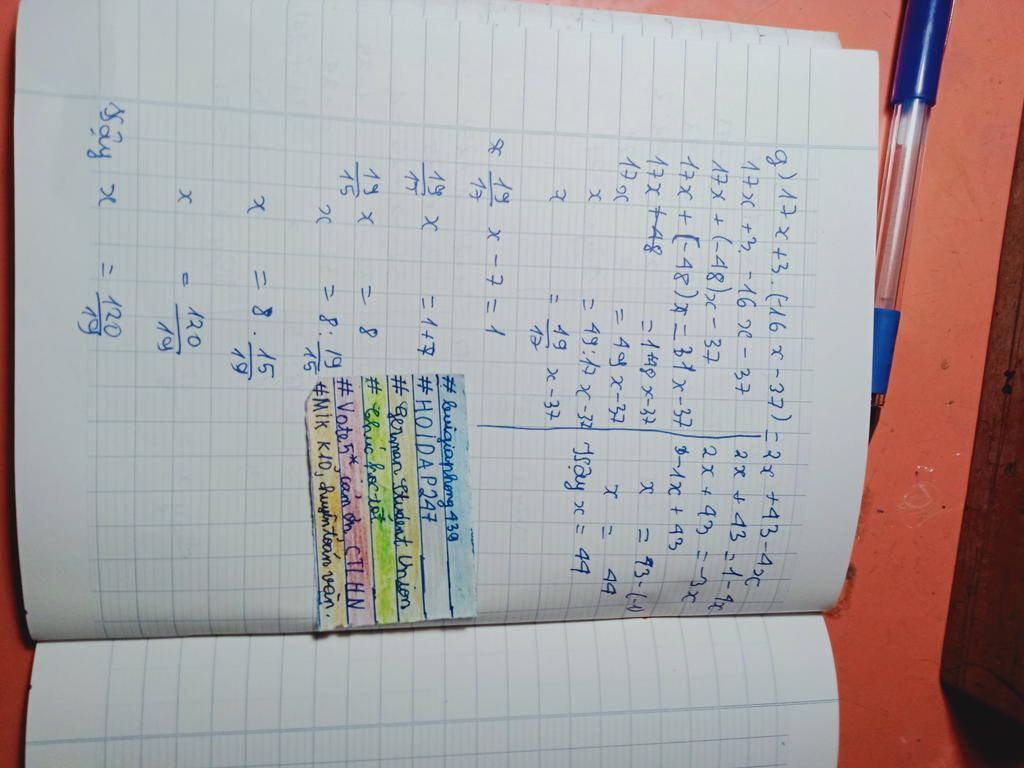 g) 17x + 3. (-16x - 37) = 2x + 43 - 4x
17x + 3. -16x - 37
17x + (-48)x - 37
17x + (-48)x = 31x - 37
17x + 48 = 1+48x-37
17x = 49x-37
x = 49:17x-37
x = 49/17 x-37
2x + 43 = 1-4x
2x + 43 = -3x
-1x + 43
x = 43-(-1)
x = 44
Vậy x = 44
19/17 x - 7 = 1
19/15 x = 1+7
19/15 x = 8
x = 8 : 19/15
x = 8 . 15/19
x = 120/19
Vậy x = 120/19
#buigiaphong439
#HOIDAP247
#German Student Union
# Chúc học tốt
#Vote 5*, cảm ơn, CTLHN
#Mik K10, chuyên toán văn.